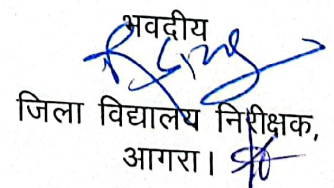 भवदीय
जिला विद्यालय निरीक्षक,
आगरा।